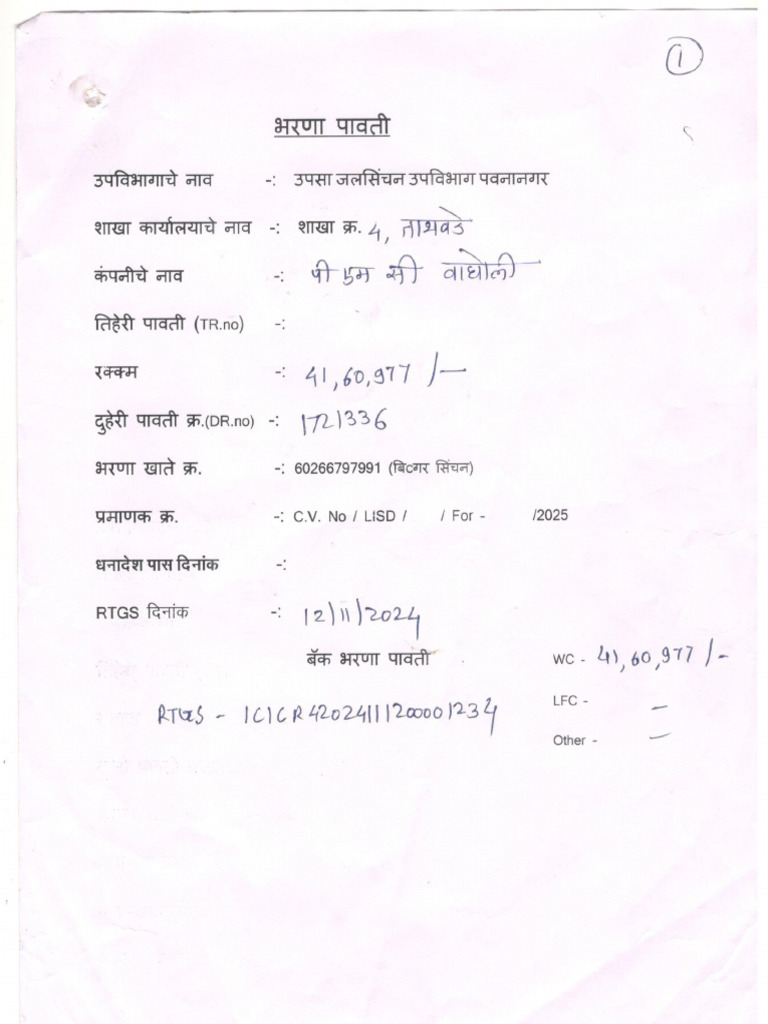 1
भरणा पावती
उपविभागाचे नाव -: उपसा जलसिंचन उपविभाग पवनानगर
शाखा कार्यालयाचे नाव -: शाखा क्र. 4, ताथवडे
कंपनीचे नाव -: पी एम सी वाघोली
तिहेरी पावती (TR.no) -:
रक्कम -: 41,60,977/-
दुहेरी पावती क्र.(DR.no) -: 1721336
भरणा खाते क्र. -: 60266797991 (बिगर सिंचन)
प्रमाणक क्र. -: C.V. No / LISD / / For - /2025
धनादेश पास दिनांक -:
RTGS दिनांक -: 12/11/2024
बॅक भरणा पावती WC - 41,60,977/-
RTGS - ICICR42024111200001234 LFC - —
Other - —